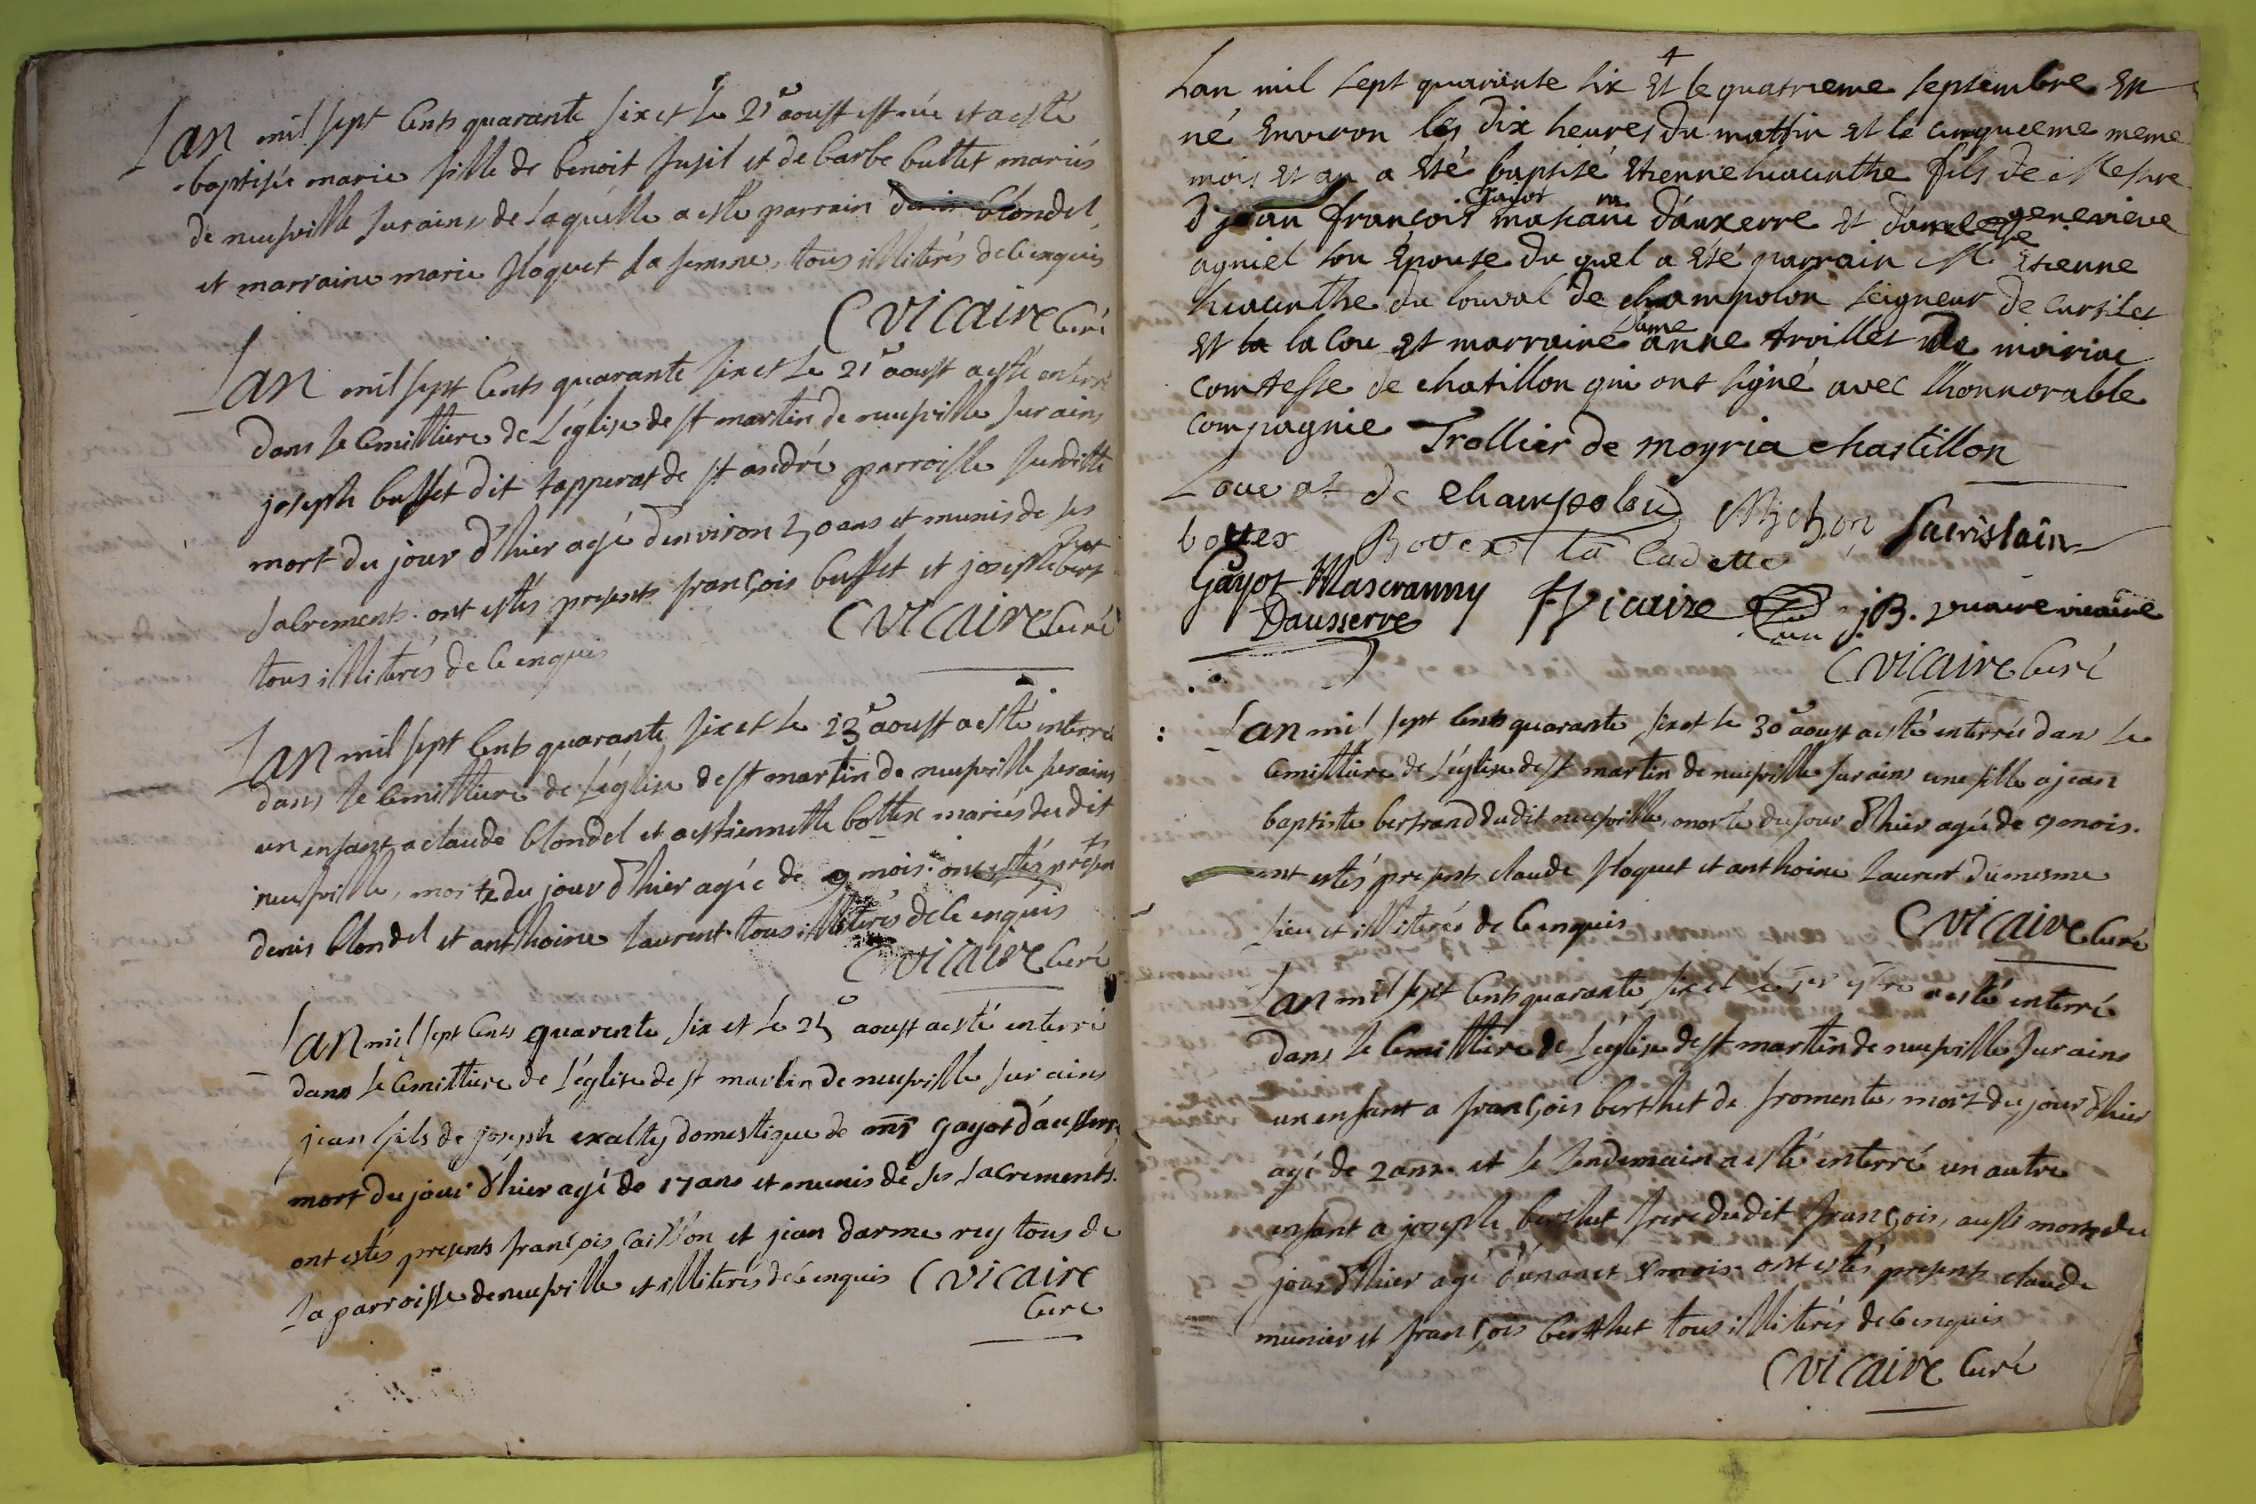 Lan mil sept cents quarante six et le 21e aoust est née et a esté
baptisée marie fille de benoit fusil et de barbe buttet mariés
de neufville sur ains de laquelle a esté parrain denis blondel
et marraine marie floquet sa femme, tous illiterés de ce enquis
C vicaire curé
Lan mil sept cents quarante six et le 21e aoust a esté enterré
dans le cemittiere de l'église de st martin de neufville sur ains
joseph buffet dit tapperat de st andré parroisse susditte
mort du jour d'hier agé d'environ 50 ans et munis de ses
sacrements. ont estés presents françois buffet et joseph
tous illiterés de ce enquis
C vicaire curé
Lan mil sept cents quarante six et le 23e aoust a esté interré
dans le cemittiere de l'église de st martin de neufville sur ains
un enfant a claude blondel et a estiennette bottex mariés du dit
neufville, morte du jour d'hier agée de 9 mois. ont estés présen
denis blondel et anthoine laurent tous illiterés de ce enquis
C vicaire curé
Lan mil sept cents quarente six et le 25e aoust a esté enterré
dans le cemittiere de l'église de st martin de neufville sur ains
jean fils de joseph exalty domestique de mr gayot d'ausserre
mort du jour d'hier agé de 17 ans et munis de ses sacrements.
ont estés presents françois caillon et jean darmerey tous de
la parroisse de neufville et illiterés de ce enquis C vicaire
curé
Lan mil sept quarante six et le quatrieme septembre est
né environ les dix heures du mattin et le cinquieme meme
mois et an a été baptisé etienne hiacinthe fils de messire
d jean françois gaiot mascani d'auxerre et dame genevieve
agniel son épouse du quel a été parrain Mre etienne
hiacinthe du louvat de champolon seigneur de cursilet
et la la cou et marraine dame anne trollier de moiriac
comtesse de chatillon qui ont signé avec l'honnorable
compagnie Trollier de moyria chastillon
Louvat de champolon Michon Sacristain
bottex Bottex la Cadette
Gayot Mascranny Dausserre F Vicaire J.B. vicaire
C vicaire curé
Lan mil sept cents quarante six et le 30e aoust a esté enterrée dans le
cemittiere de l'église de st martin de neufville sur ains une fille a jean
baptiste bertrand du dit neufville, morte du jour d'hier agée de 9 mois.
ont estés presents claude floquet et anthoine laurent du mesme
lieu et illiterés de ce enquis C vicaire curé
Lan mil sept cents quarante six et le 1er 7bre a esté interré
dans le cemittiere de l'église de st martin de neufville sur ains
un enfant a françois berthet de fromente, mort du jour d'hier
agé de 2 ans. et le lendemain a esté enterré un autre
enfant a joseph berthet frere du dit françois, aussi mort du
jour d'hier agé d'un an et 8 mois. ont estés presents claude
munier et françois berthet tous illiterés de ce enquis
C vicaire curé